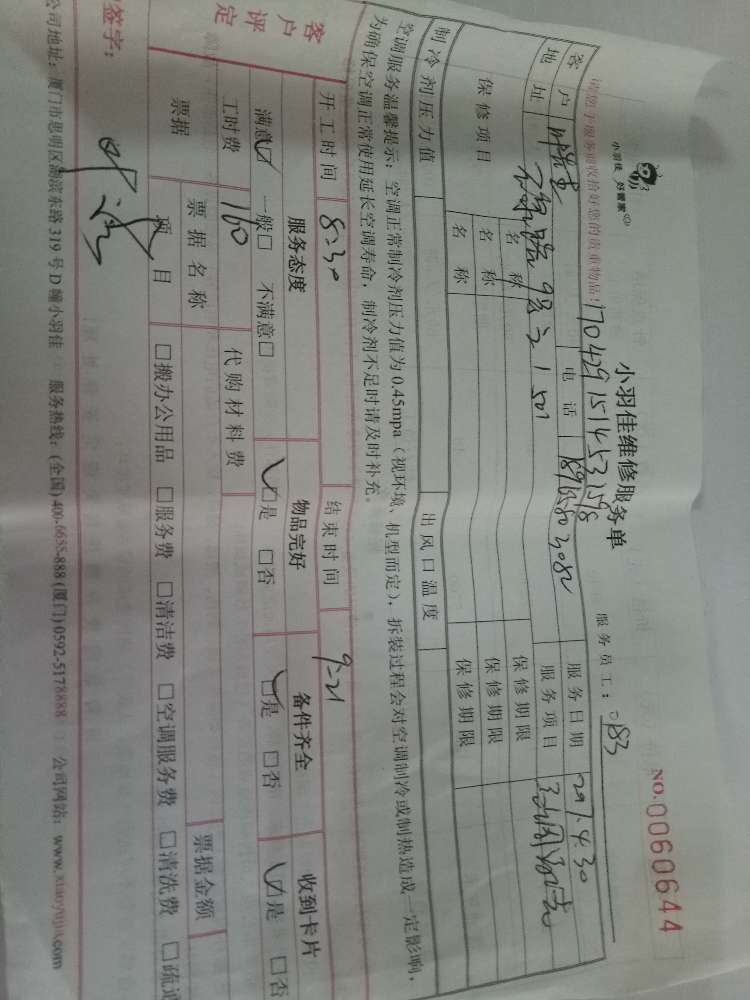 小羽佳 好管家
小羽佳维修服务单
NO.0060644
请您于服务前收拾好您的贵重物品!
170429151453598
服务员工: 083
客户 电话 服务日期 2017.4.30
地址 9号之1 501 服务项目
保修项目 名称 保修期限
名称 保修期限
名称 保修期限
制冷剂压力值 出风口温度
空调服务温馨提示: 空调正常制冷剂压力值为0.45mpa (视环境、机型而定), 拆装过程会对空调制冷或制热造成一定影响,
为确保空调正常使用延长空调寿命, 制冷剂不足时请及时补充。
开工时间 8:30 结束时间 9:21
客户评定 服务态度 物品完好 备件齐全 收到卡片
满意☑ 一般□ 不满意□ ☑是 □否 ☑是 □否 ☑是 □否
工时费 160 代购材料费
票据 票据名称 票据金额
项目 □搬办公用品 □服务费 □清洁费 □空调服务费 □清洗费 □疏通
签字:
公司地址: 厦门市思明区湖滨东路319号D幢小羽佳 服务热线: (全国)400-6655-888 (厦门)0592-5178888 公司网站: www.xiaoyujia.com